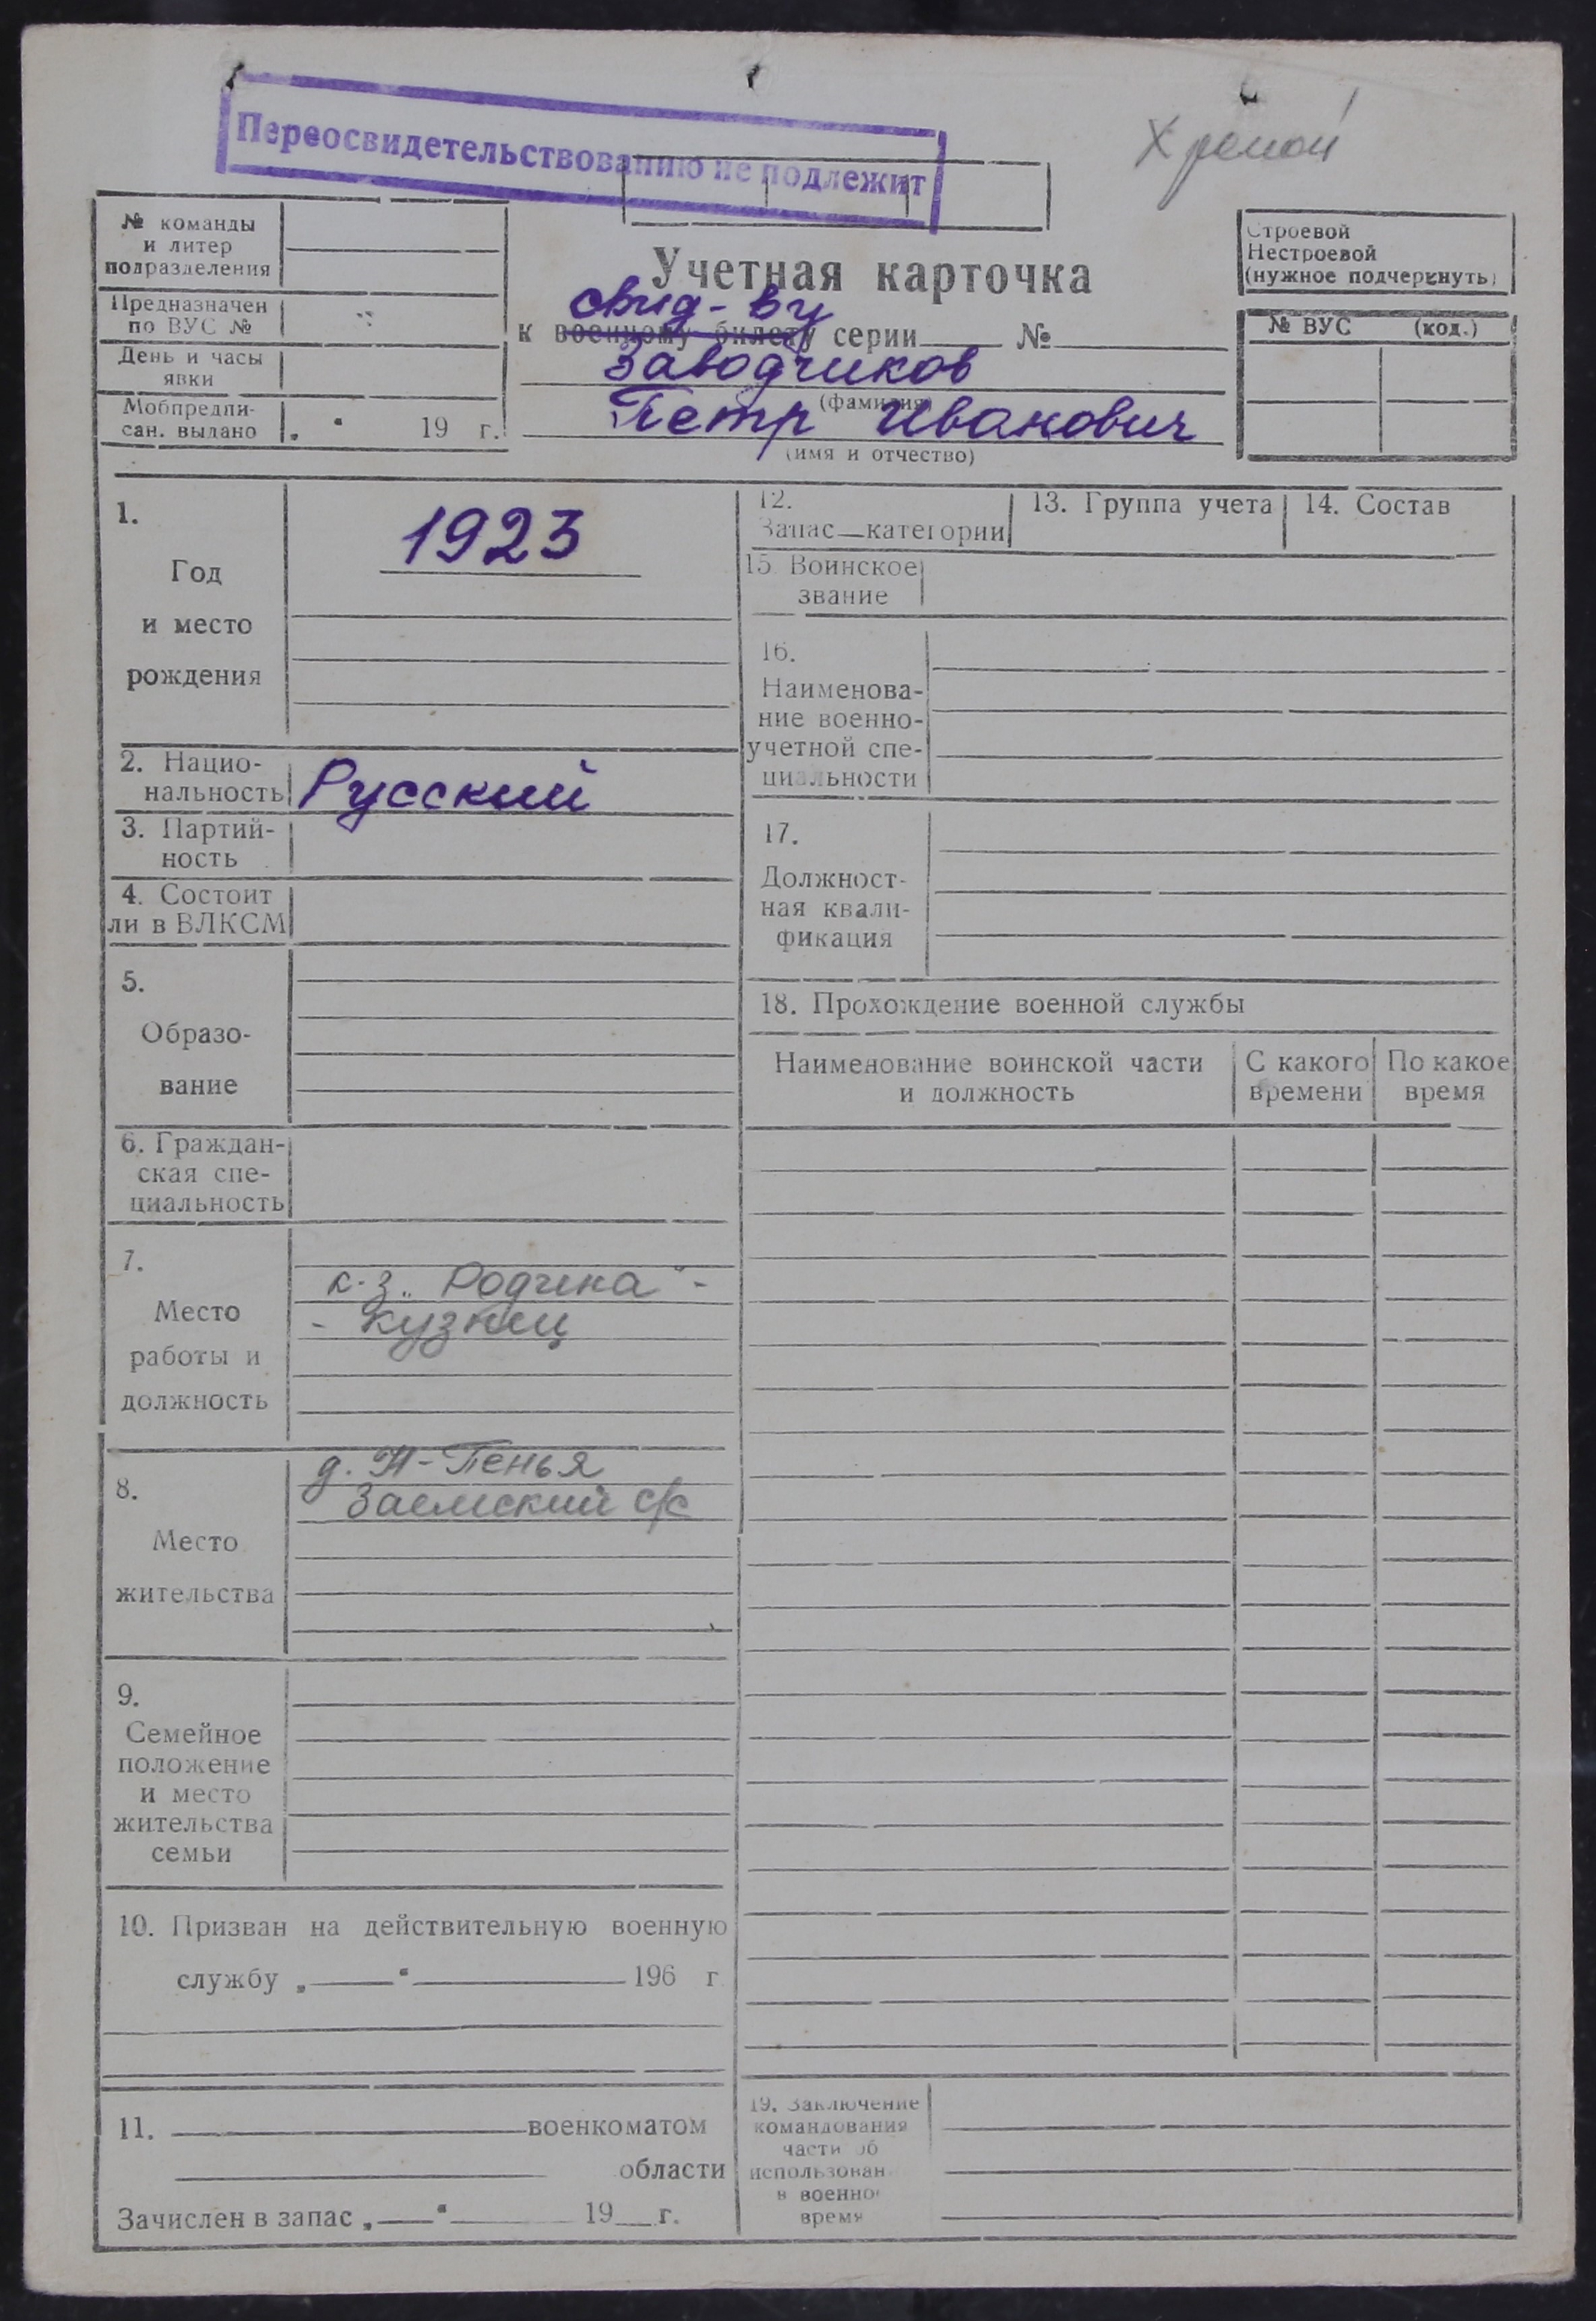 Переосвидетельствованию не подлежит
Хромой
№ команды
и литер
подразделения
Предназначен
по ВУС №
День и часы
явки
Мобпредпи-
сан. выдано „ “ 19 г.
Учетная карточка
свид-ву
к военному билету серии №
Заводчиков
(фамилия)
Петр Иванович
(имя и отчество)
Строевой
Нестроевой
(нужное подчеркнуть)
№ ВУС (код.)
1.
Год
и место
рождения
1923
2. Нацио-
нальность Русский
3. Партий-
ность
4. Состоит
ли в ВЛКСМ
5.
Образо-
вание
6. Граждан-
ская спе-
циальность
7.
Место
работы и
должность
к-з „Родина“ -
- кузнец
8.
Место
жительства
д. Н-Пенья
Заемский с/с
9.
Семейное
положение
и место
жительства
семьи
10. Призван на действительную военную
службу „ “ 196 г.
11. военкоматом
области
Зачислен в запас „ “ 19 г.
12.
Запас—категории
13. Группа учета
14. Состав
15 Воинское
звание
16.
Наименова-
ние военно-
учетной спе-
циальности
17.
Должност-
ная квали-
фикация
18. Прохождение военной службы
Наименование воинской части
и должность
С какого
времени
По какое
время
19. Заключение
командования
части об
использован
в военно
время